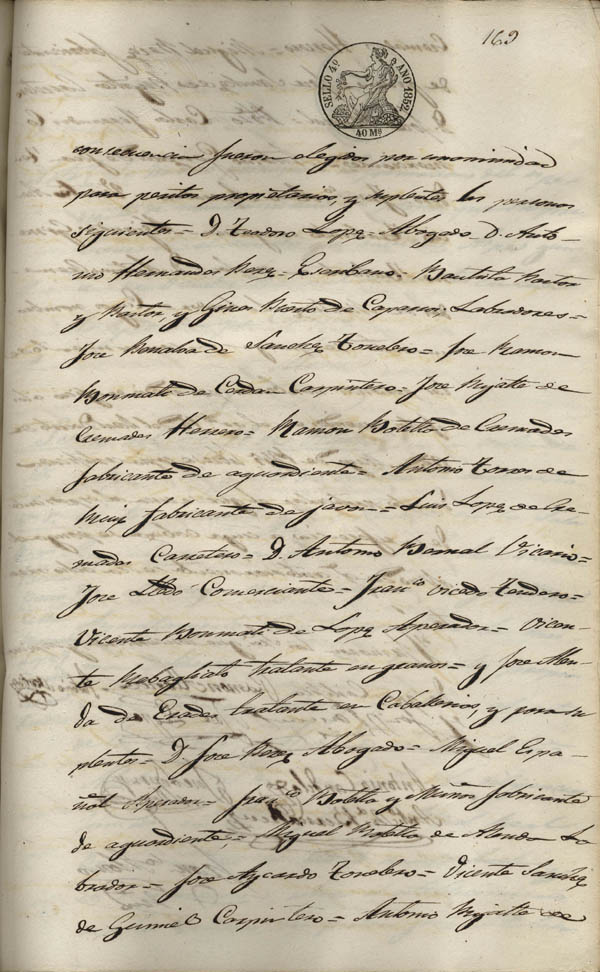 169
SELLO 4º AÑO 1852.
40 Ms
consecuencia fueron elegidos por unanimidad
para peritos propietarios, y suplentes, las personas
siguientes = D. Teodoro Lopez = Abogado = D. Anto-
nio Hernandes Perez = Escribano = Bautista Pastor
y Pastor, y Gines de Labradores =
Jose de Sanchez Tonelero = Jose Ramon
Boumati de Cerdan Carpintero = Jose Mijalte de
Cremades Herrero = Ramon Botella de Cremades
fabricante de aguardiente = Antonio Torres de
fabricante de javon = Luis Lopez de Cre-
mades Carretero = D. Antonio Bernal Vicario =
Jose Lledó Comerciante = Franco Vicedo Tendero =
Vicente Boumati de Lopez Aperador = Vicen-
te Rebagliato tratante en granos = y Jose Men-
de tratante en Caballerias, y para su
plentes = D. Jose Perez Abogado = Miguel Espa-
ñol Aperador = Franco Botella y Muñoz fabricante
de aguardiente, = Miguel Botella de La
brador = Jose Azcardo Tonelero = Vicente Sanchez
de Carpintero = Antonio Mijalte de